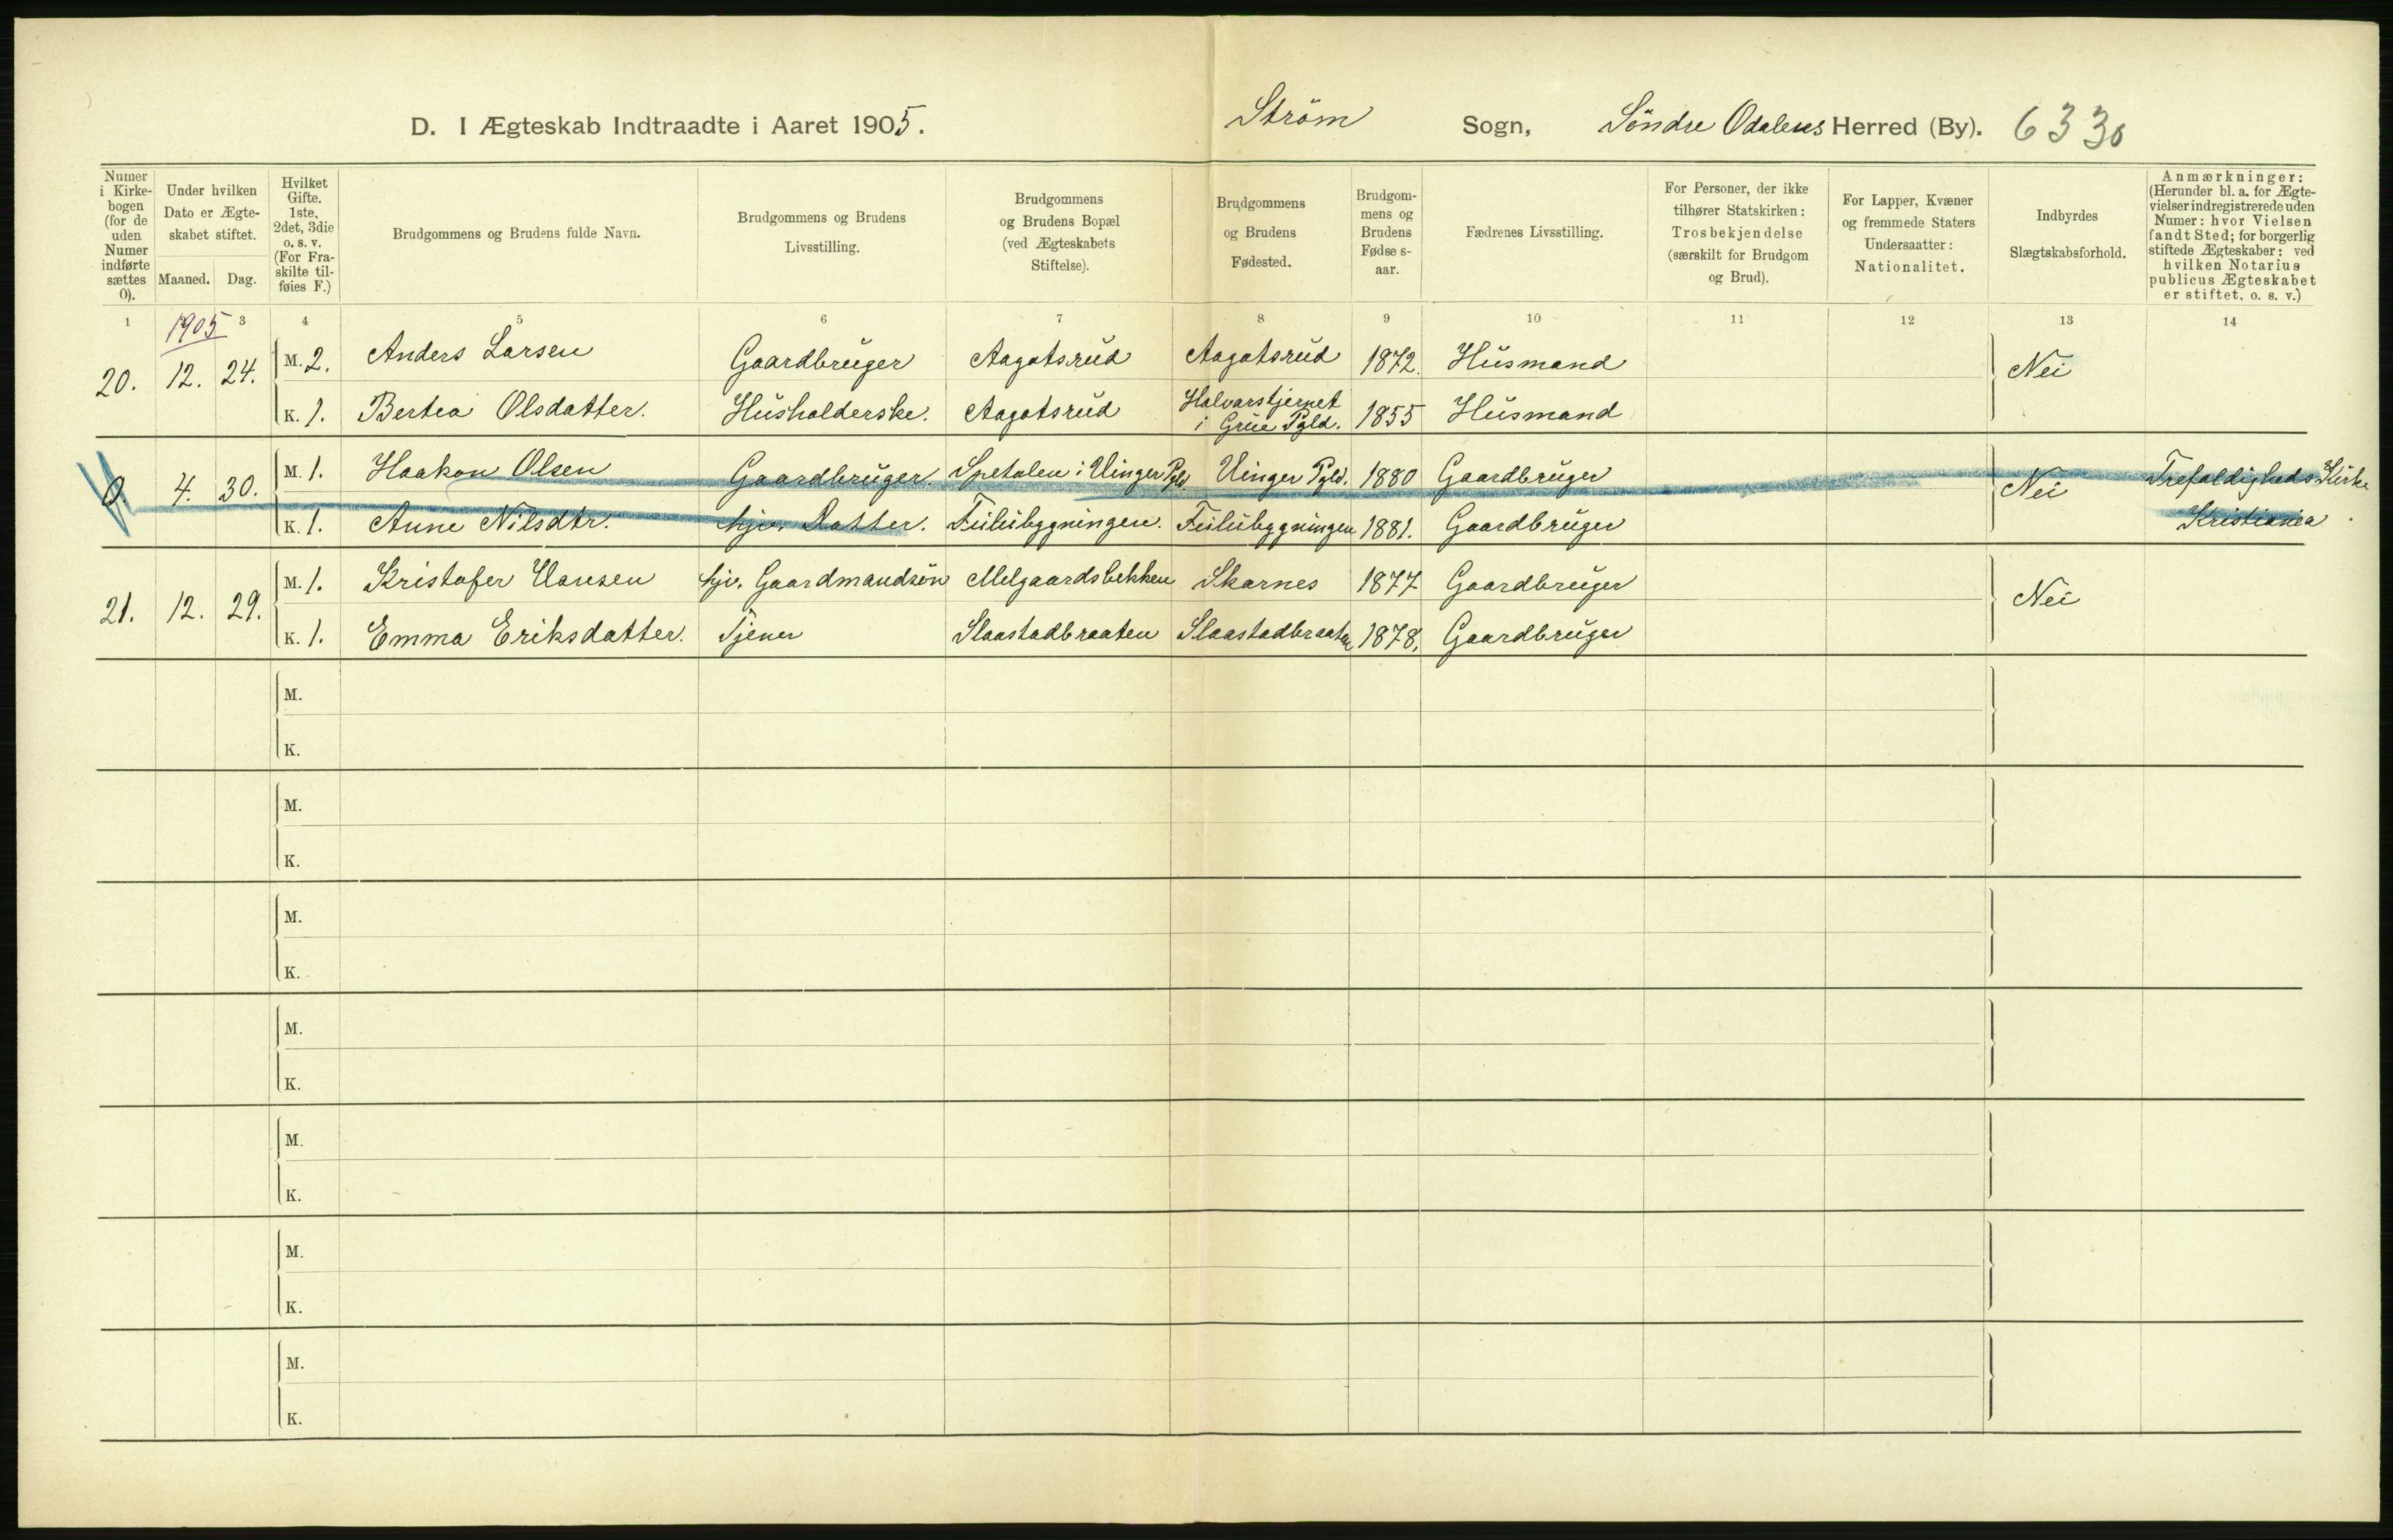 D. I Ægteskab Indtraadte i Aaret 1905. Ström Sogn, Söndre Odalens Herred (By). 6330
Numer i Kirkebogen (for de uden Numer indførte sættes 0).
Under hvilken Dato er Ægteskabet stiftet.
Maaned. Dag.
Hvilket Gifte. 1ste, 2det, 3die o. s. v. (For Fraskilte tilføies F.)
Brudgommens og Brudens fulde Navn.
Brudgommens og Brudens Livsstilling.
Brudgommens og Brudens Bopæl (ved Ægteskabets Stiftelse).
Brudgommens og Brudens Fødested.
Brudgommens og Brudens Fødselsaar.
Fædrenes Livsstilling.
For Personer, der ikke tilhører Statskirken: Trosbekjendelse (særskilt for Brudgom og Brud).
For Lapper, Kvæner og fremmede Staters Undersaatter: Nationalitet.
Indbyrdes Slægtskabsforhold.
Anmærkninger: (Herunder bl. a. for Ægtevielser indregistrerede uden Numer: hvor Vielsen fandt Sted; for borgerlig stiftede Ægteskaber: ved hvilken Notarius publicus Ægteskabet er stiftet, o. s. v.)
1 3 4 5 6 7 8 9 10 11 12 13 14
1905
20. 12. 24. M. 2. Anders Larsen Gaardbruger Aagotsrud Aagotsrud 1872. Husmand Nei
K. 1. Bertea Olsdatter. Husholderske. Aagotsrud Halvarstjernet i Grue Pgld. 1855 Husmand
0 4. 30. M. 1. Haakon Olsen Gaardbruger. Spetalen i Vinger Pgld Vinger Pgld. 1880 Gaardbruger Nei Trefoldigheds Kirke
K. 1. Anne Nilsdtr. hjv. Datter. Fulubygningen. Fulubygningen 1881. Gaardbruger Kristiania.
21. 12. 29. M. 1. Kristofer Hansen hjv. Gaardmandsön Melgaardsbekken Skarnes 1877 Gaardbruger Nei
K. 1. Emma Eriksdatter. Tjener Slaastadbraaten Slaastadbraaten 1878. Gaardbruger
M.
K.
M.
K.
M.
K.
M.
K.
M.
K.
M.
K.
M.
K.